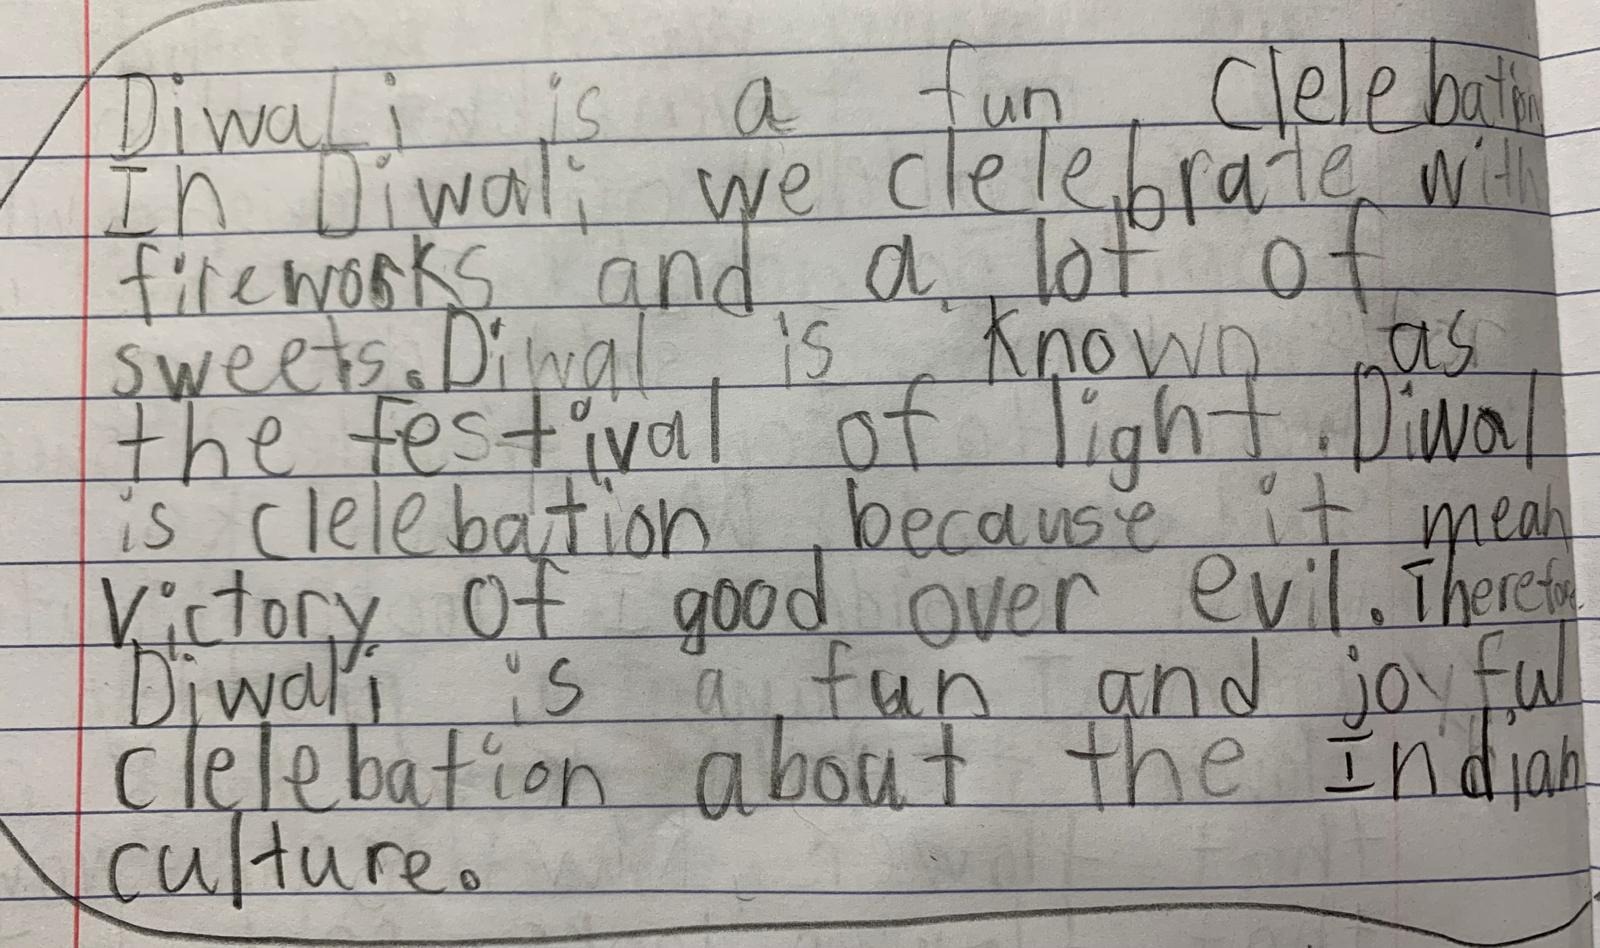 Diwali is a fun clelebation
In Diwali we clelebrate with
fireworks and a lot of
sweets. Diwal is known as
the festival of light. Diwal
is clelebation because it mean
victory of good over evil. Therefore
Diwali is a fun and joyful
clelebation about the Indian
culture.